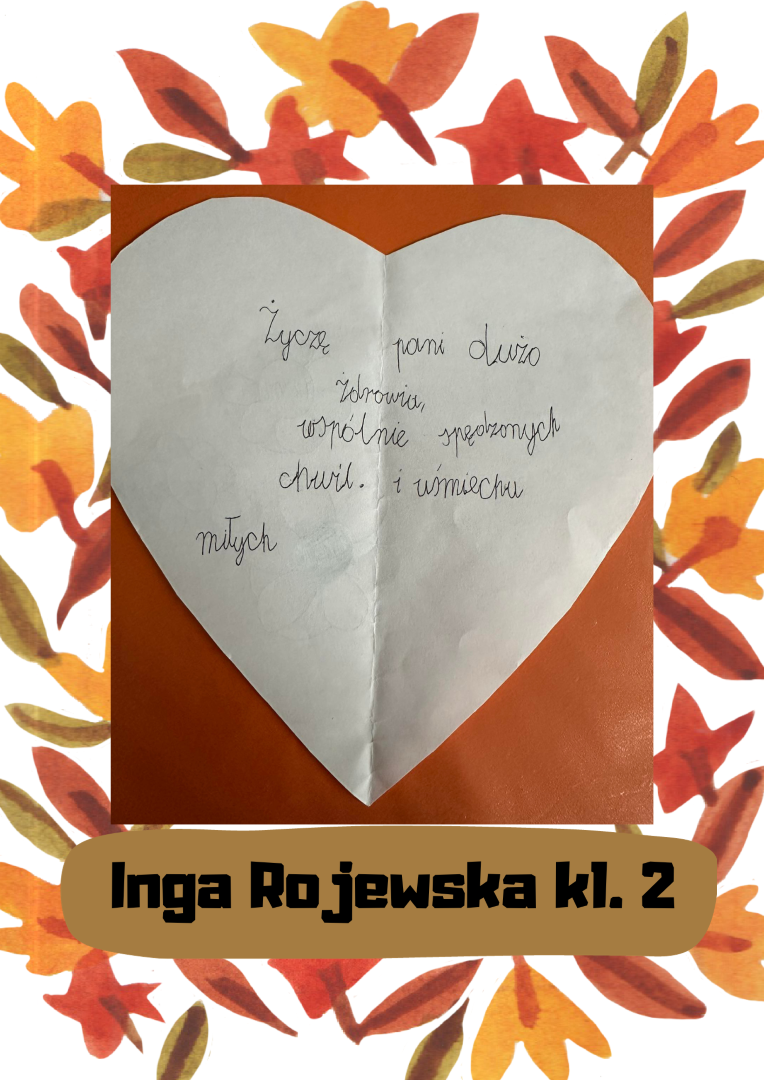 Życzę pani dużo
żdrowia,
wspólnie spędzonych
chwil. i uśmiechu
miłych
Inga Rojewska kl. 2